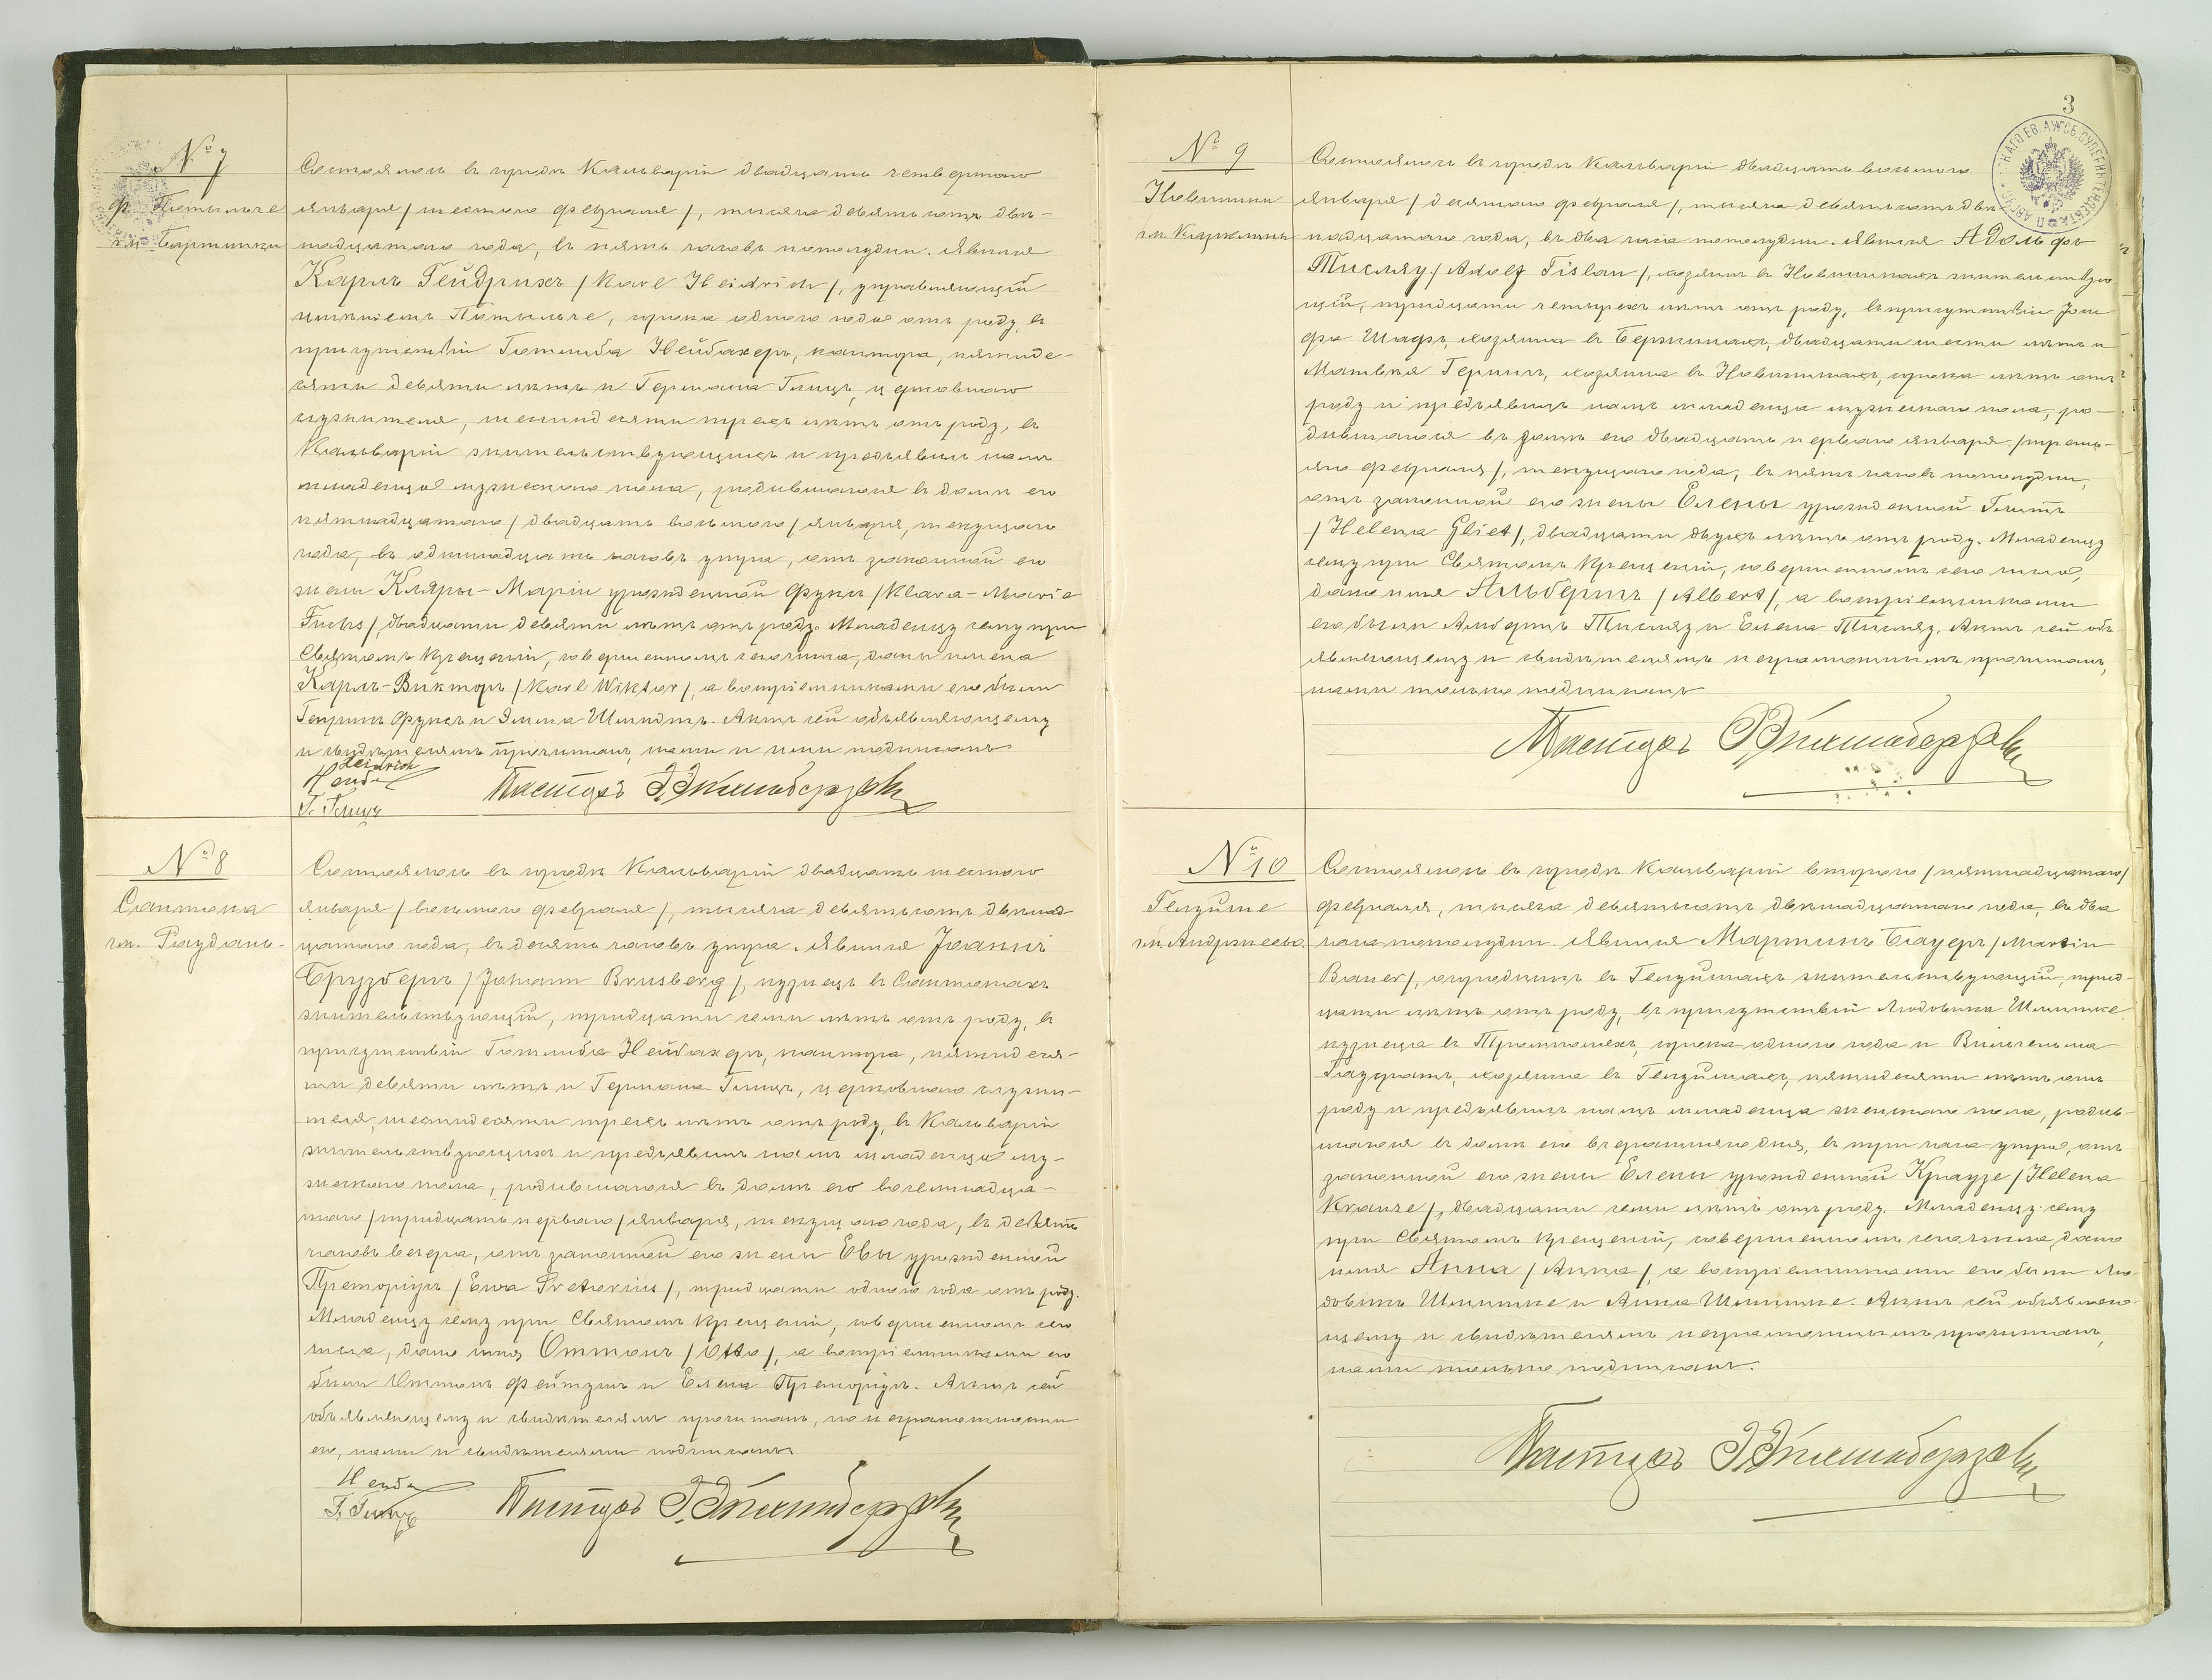 № 7
ф. Потыльче
гм. Бартники
Состоялось въ городѣ Кальваріи двадцать четвертаго
января / шестого февраля /, тысяча девятьсотъ двѣ-
надцатаго года, въ пять часовъ пополудни. Явился
Карлъ Гейдрихъ / Karl Heidrich /, управляющій
имѣніемъ Потыльче, сорока одного года отъ роду, въ
присутствіи Готлиба Нейбахеръ, кантора, пятиде-
сяти девяти лѣтъ и Германа Глицъ, церковнаго
служителя, шестидесяти трехъ лѣтъ отъ роду, въ
Кальваріи жительствующихъ и предъявилъ намъ
младенца мужескаго пола, родившагося въ домѣ его
пятнадцатаго / двадцать восьмого / января, текущаго
года, въ одиннадцать часовъ утра, отъ законной его
жены Клары-Маріи урожденной Фуксъ / Klara-Maria
Fuchs /, двадцати девяти лѣтъ отъ роду. Младенцу сему при
Святомъ Крещеніи, совершенномъ сего числа, даны имена
Карлъ-Викторъ / Karl Wiktor /, а воспріемниками его были
Генрихъ Фуксъ и Эмма Шмидтъ. Актъ сей объявляющему
и свидѣтелямъ прочитанъ, нами и ими подписанъ
Heidrich
Нейба
Г. Глицъ
Пасторъ
№ 8
Сантака
гм. Раудань-
Состоялось въ городѣ Кальваріи двадцать шестого
января / восьмого февраля /, тысяча девятьсотъ двѣнад-
цатаго года, въ десять часовъ утра. Явился Іоаннъ
Брузбергъ / Johann Brusberg /, кузнецъ въ Сантакахъ
жительствующій, тридцати семи лѣтъ отъ роду, въ
присутствіи Готлиба Нейбахеръ, кантора, пятидеся-
ти девяти лѣтъ и Германа Глицъ, церковнаго служи-
теля, шестидесяти трехъ лѣтъ отъ роду, въ Кальваріи
жительствующихъ и предъявилъ намъ младенца му-
жескаго пола, родившагося въ домѣ его восемнадца-
таго / тридцать перваго / января, текущаго года, въ девять
часовъ вечера, отъ законной его жены Евы урожденной
Преторіусъ / Ewa Pretorius /, тридцати одного года отъ роду.
Младенцу сему при Святомъ Крещеніи, совершенномъ сего
числа, дано имя Оттонъ / Otto /, а воспріемниками его
были Оттонъ и Елена Преторіусъ. Актъ сей
объявляющему и свидѣтелямъ прочитанъ, по неграмотности
его, нами и свидѣтелями подписанъ
Нейба
Г. Глицъ
Пасторъ
3
№ 9
Новиники
гм. Кирсна
Состоялось въ городѣ Кальваріи двадцать восьмого
января / десятаго февраля /, тысяча девятьсотъ двѣ-
надцатаго года, въ два часа пополудни. Явился Адольфъ
Тислау / Adolf Tislau /, хозяинъ въ Новиникахъ жительствую
щій, тридцати четырехъ лѣтъ отъ роду, въ присутствіи Іози
фа Шадъ, хозяина въ Бержинахъ, двадцати шести лѣтъ и
Матвѣя Герингъ, хозяина въ Новиникахъ, сорока лѣтъ отъ
роду и предъявилъ намъ младенца мужескаго пола, ро-
дившагося въ домѣ его двадцать перваго января / треть-
яго февраля /, текущаго года, въ пять часовъ пополудни,
отъ законной его жены Елены урожденной Глитъ
/ Helena Gliet /, двадцати двухъ лѣтъ отъ роду. Младенцу
сему при Святомъ Крещеніи, совершенномъ сего числа,
дано имя Альбертъ / Albert /, а воспріемниками
его были Альбертъ Тислау и Елена Тислау. Актъ сей объ-
являющему и свидѣтелямъ неграмотнымъ прочитанъ,
нами только подписанъ
Пасторъ
№ 10
Гензуйше
гм. Андржеево.
Состоялось въ городѣ Кальваріи второго / пятнадцатаго /
февраля, тысяча девятьсотъ двѣнадцатаго года, въ два
часа пополудни. Явился Мартинъ Бауеръ / Martin
Bauer /, огородникъ въ жительствующій, трид-
цати лѣтъ отъ роду, въ присутствіи Людовика Шлишке
кузнеца въ сорока одного года и Вильгельма
хозяина въ пятидесяти лѣтъ отъ
роду и предъявилъ намъ младенца женскаго пола, родив-
шагося въ домѣ его вчерашняго дня, въ три часа утра, отъ
законной его жены Елены урожденной Краузе / Helena
Krause /, двадцати семи лѣтъ отъ роду. Младенцу сему
при Святомъ Крещеніи, совершенномъ сего числа, дано
имя Анна / Anna /, а воспріемниками его были Лю-
довикъ Шлишке и Анна Шлишке. Актъ сей объявляю-
щему и свидѣтелямъ неграмотнымъ прочитанъ,
нами только подписанъ.
Пасторъ